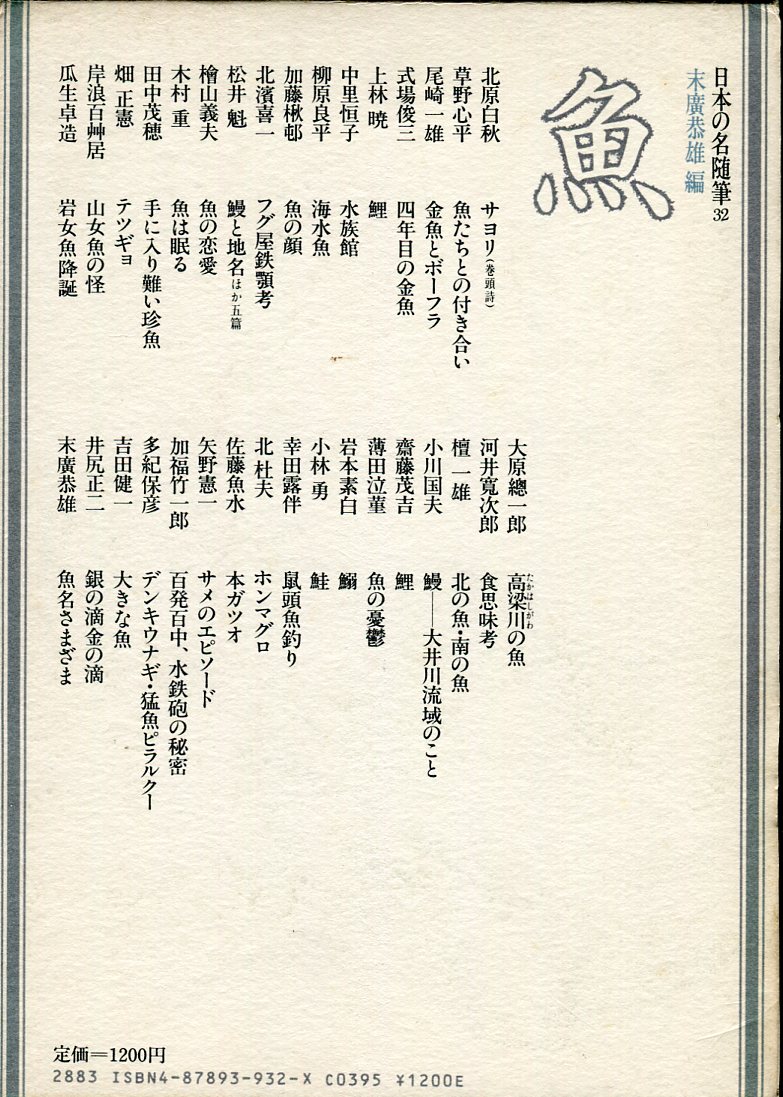 日本の名随筆32
末廣恭雄 編
魚
北原白秋 サヨリ(巻頭詩)
草野心平 魚たちとの付き合い
尾崎一雄 金魚とボーフラ
式場俊三 四年目の金魚
上林 暁 鯉
中里恒子 水族館
柳原良平 海水魚
加藤楸邨 魚の顔
北濱喜一 フグ屋鉄顎考
松井 魁 鰻と地名ほか五篇
檜山義夫 魚の恋愛
木村 重 魚は眠る
田中茂穂 手に入り難い珍魚
畑 正憲 テツギョ
岸浪百艸居 山女魚の怪
瓜生卓造 岩女魚降誕
大原總一郎 高梁川の魚
たかはしがわ
河井寬次郎 食思味考
檀 一雄 北の魚・南の魚
小川国夫 鰻──大井川流域のこと
齋藤茂吉 鯉
薄田泣菫 魚の憂鬱
岩本素白 鰯
小林 勇 鮭
幸田露伴 鼠頭魚釣り
北 杜夫 ホンマグロ
佐藤魚水 本ガツオ
矢野憲一 サメのエピソード
加福竹一郎 百発百中、水鉄砲の秘密
多紀保彦 デンキウナギ・猛魚ピラルクー
吉田健一 大きな魚
井尻正二 銀の滴金の滴
末廣恭雄 魚名さまざま
定価=1200円
2883 ISBN4-87893-932-X C0395 ¥1200E